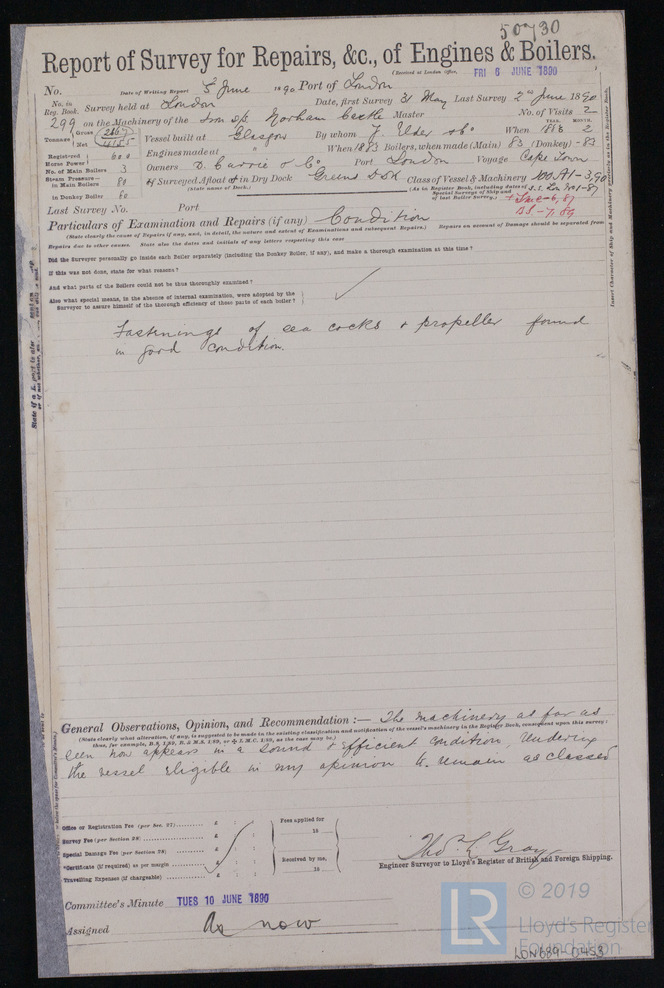 50730
Report of Survey for Repairs, &c., of Engines & Boilers.
(Received at London Office, FRI 6 JUNE 1890
No. Date of Writing Report 5 June 1890 Port of London
No. in Reg. Book. Survey held at London Date, first Survey 31 May Last Survey 2nd June 1890
299 on the Machinery of the Norham Castle Master No. of Visits 2
Tonnage { Gross
Net Vessel built at Glasgow By whom J. Elder & Co. When YEAR. MONTH. 2
Registered Horse Power Engines made at " When 1883 Boilers, when made (Main) 83 (Donkey) 83
No. of Main Boilers 3 Owners D. Currie & Co Port London Voyage Cape Town
Steam Pressure— in Main Boilers 80 If Surveyed Afloat or in Dry Dock Greens Dok Class of Vessel & Machinery 100A1-3,90
(State name of Dock.) (As in Register Book, including dates of Special Surveys of Ship and of last Boiler Survey.)
in Donkey Boiler 60
BS-7,89
Last Survey No. Port
Particulars of Examination and Repairs (if any) Condition
(State clearly the cause of Repairs if any, and, in detail, the nature and extent of Examinations and subsequent Repairs.) Repairs on account of Damage should be separated from
Repairs due to other causes. State also the dates and initials of any letters respecting this case
Did the Surveyor personally go inside each Boiler separately (including the Donkey Boiler, if any), and make a thorough examination at this time?
If this was not done, state for what reasons?
And what parts of the Boilers could not be thus thoroughly examined?
Also what special means, in the absence of internal examination, were adopted by the
Surveyor to assure himself of the thorough efficiency of those parts of each boiler?
Fastenings of sea cocks & propeller found
in good condition.
General Observations, Opinion, and Recommendation :— The machinery as far as
(State clearly what alteration, if any, is suggested to be made in the existing classification and notification of the vessel's machinery in the Register Book, consequent upon this survey:
seen now appears in a sound & efficient condition, rendering
the vessel eligible in my opinion to remain as classed
Office or Registration Fee (per Sec. 27) £ : : Fees applied for
Survey Fee (per Section 28) £ : : 18
Special Damage Fee (per Section 28) £ : :
*Certificate (if required) as per margin £ : : Received by me,
Travelling Expenses (if chargeable) £ : : 18
Thos. L. Gray
Engineer Surveyor to Lloyd's Register of British and Foreign Shipping.
Committee's Minute TUES 10 JUNE 1890
Assigned As now
LR © 2019
Lloyd's Register
Foundation
LON689-0453